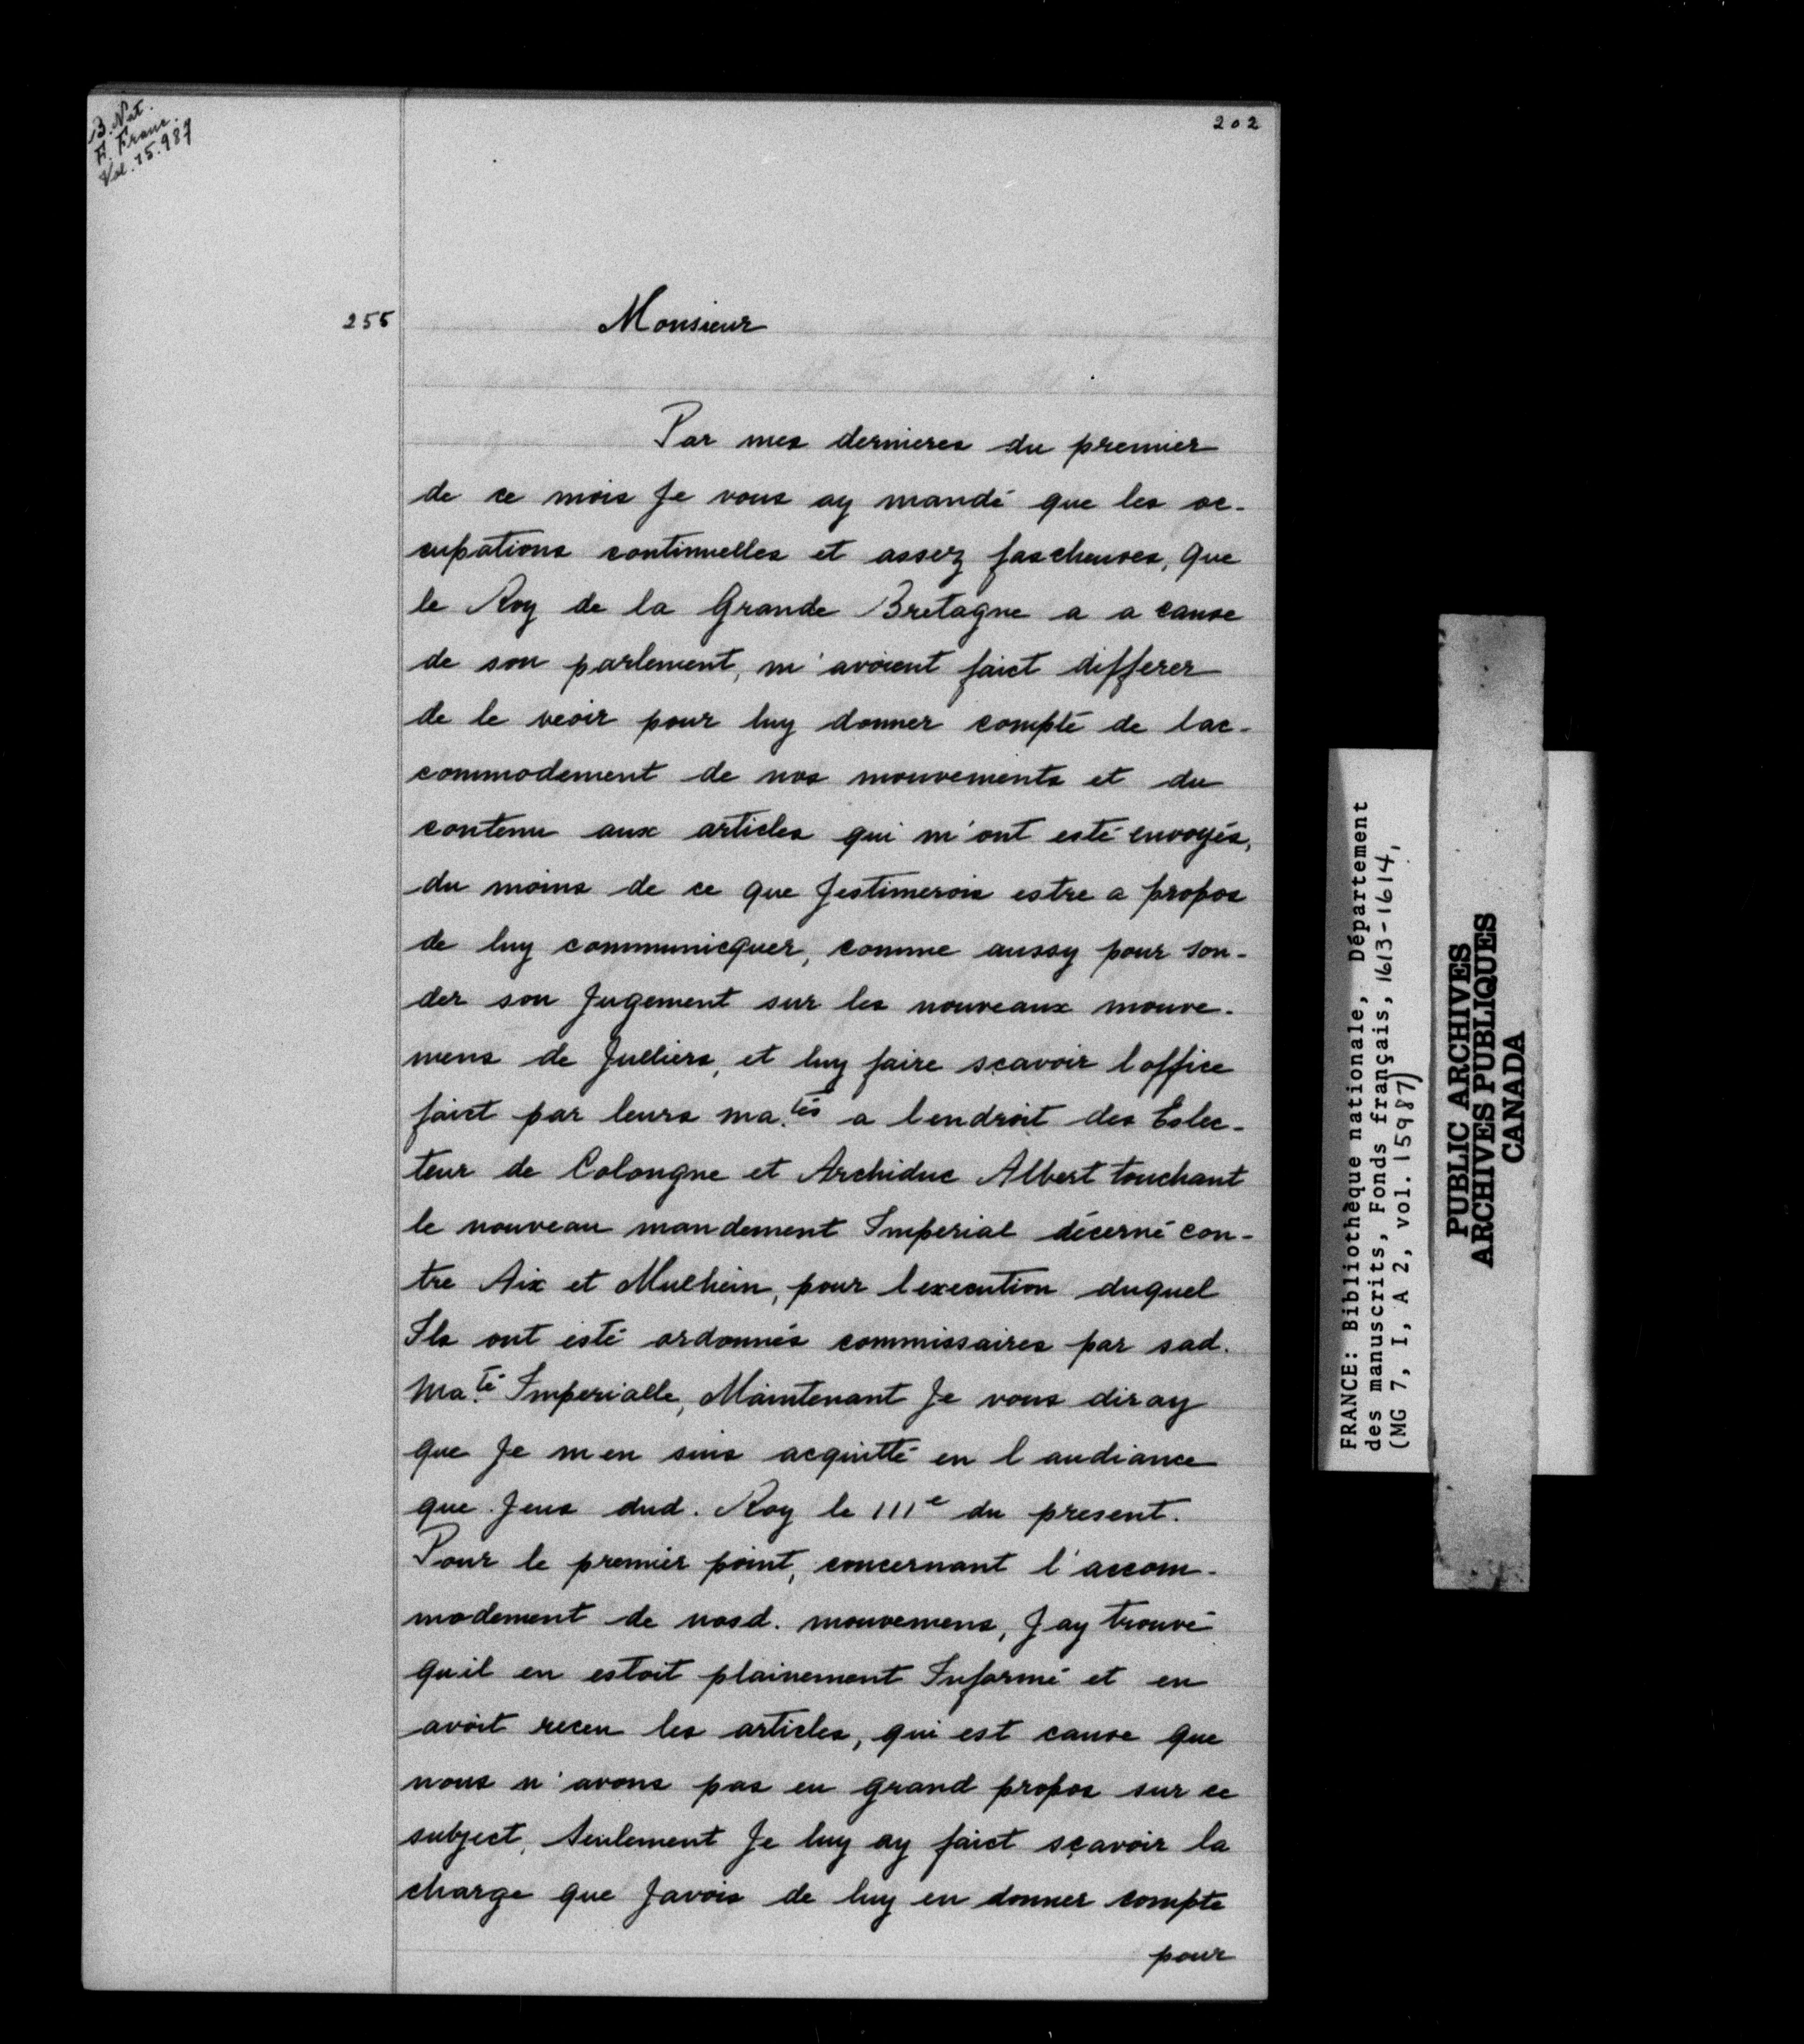 B. Nat.
F. Franc.
Vol. 15.987
202
255
Monsieur
Par mes dernieres du premier
de ce mois Je vous ay mandé que les oc-
cupations continuelles et assez fascheuses, que
le Roy de la Grande Bretagne a a cause
de son parlement, m'avoient faict differer
de le veoir pour luy donner compte de lac-
commodement de nos mouvements et du
contenu aux articles qui m'ont esté envoyés,
du moins de ce que Jestimerois estre a propos
de luy communicquer, comme aussy pour son-
der son Jugement sur les nouveaux mouve-
mens de Julliers, et luy faire sçavoir loffice
faict par leurs ma.tés a lendroit des Eslec-
teur de Colongne et Archiduc Albert touchant
le nouveau mandement Imperial décerné con-
tre Aix et Mulhein, pour lexecution duquel
Ils ont esté ordonnés commissaires par sad.
Ma.té Imperialle, Maintenant Je vous diray
que Je men suis acquitté en l audiance
que Jeus dud. Roy le IIIe du present.
Pour le premier point, concernant l'accom-
modement de nosd. mouvemens, J ay trouvé
quil en estoit plainement Informé et en
avoit receu les articles, qui est cause que
nous n'avons pas eu grand propos sur ce
subject, Seulement Je luy ay faict sçavoir la
charge que Javois de luy en donner compte
pour
FRANCE: Bibliothèque nationale, Département
des manuscrits, Fonds français, 1613-1614,
(MG 7, I, A 2, vol. 15987)
PUBLIC ARCHIVES
ARCHIVES PUBLIQUES
CANADA